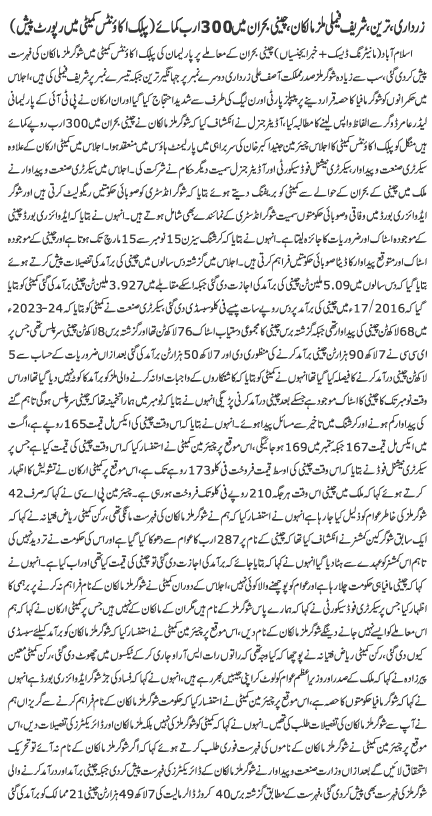 زرداری، ترین، شریف فیملی ملز مالکان، چینی بحران میں 300 ارب کمائے (پبلک اکاؤنٹس کمیٹی میں رپورٹ پیش)
اسلام آباد (مانیٹرنگ ڈیسک + خبر ایجنسیاں) چینی بحران کے معاملے پر پارلیمان کی پبلک اکاؤنٹس کمیٹی میں شوگر ملز مالکان کی فہرست
پیش کر دی گئی، سب سے زیادہ شوگر ملز صدر مملکت آصف علی زرداری دوسرے نمبر پر جہانگیر ترین جبکہ تیسرے نمبر پر شریف فیملی کی ہیں، اجلاس
میں حکمرانوں کو شوگر مافیا کا حصہ قرار دینے پر پیپلز پارٹی اور ن لیگ کی طرف سے شدید احتجاج کیا گیا اور ان ارکان نے پی ٹی آئی کے پارلیمانی
لیڈر عامر ڈوگر سے الفاظ واپس لینے کا مطالبہ کیا، آڈیٹر جنرل نے انکشاف کیا کہ شوگر ملز مالکان نے چینی بحران میں 300 ارب روپے کمائے
ہیں منگل کو پبلک اکاؤنٹس کمیٹی کا اجلاس چیئرمین جنید اکبر خان کی سربراہی میں پارلیمنٹ ہاؤس میں منعقد ہوا۔ اجلاس میں کمیٹی ارکان کے علاوہ
سیکرٹری صنعت و پیداوار، سیکرٹری نیشنل فوڈ سیکورٹی اور آڈیٹر جنرل سمیت دیگر حکام نے شرکت کی۔ اجلاس میں سیکرٹری صنعت و پیداوار نے
ملک میں چینی کے بحران کے حوالے سے کمیٹی کو بریفنگ دیتے ہوئے بتایا کہ شوگر انڈسٹری کو صوبائی حکومتیں ریگولیٹ کرتی ہیں اور شوگر
ایڈوائزری بورڈ میں وفاقی و صوبائی حکومتوں سمیت شوگر انڈسٹری کے نمائندے بھی شامل ہوتے ہیں۔ انہوں نے بتایا کہ ایڈوائزری بورڈ چینی
کے موجودہ اسٹاک اور ضروریات کا جائزہ لیتا ہے۔ انہوں نے بتایا کہ کرشنگ سیزن 15 نومبر سے 15 مارچ تک ہوتا ہے اور چینی کے موجودہ
اسٹاک اور متوقع پیداوار کا ڈیٹا صوبائی حکومتیں فراہم کرتی ہیں۔ اجلاس میں گزشتہ دس سالوں میں چینی کی برآمد کی تفصیلات پیش کرتے ہوئے
بتایا گیا کہ گزشتہ دس سالوں میں 5.09 ملین ٹن چینی برآمد کی اجازت دی گئی جبکہ اسکے مقابلے میں 3.927 ملین ٹن چینی برآمد کی گئی کمیٹی کو بتایا گیا
کہ 17/2016ء میں چینی کی برآمد پر دس روپے سات پیسے فی کلو سبسڈی دی گئی، سیکرٹری صنعت نے کمیٹی کو بتایا کہ 24-2023ء
میں 68 لاکھ ٹن چینی کی پیداوار تھی جبکہ گزشتہ برس چینی کا مجموعی دستیاب اسٹاک 76 لاکھ ٹن تھا اور گزشتہ برس 8 لاکھ ٹن چینی سرپلس تھی جس پر
ای سی سی نے 7 لاکھ 90 ہزار ٹن چینی برآمد کرنے کی منظوری دی اور 7 لاکھ 50 ہزار ٹن برآمد کی گئی بعد ازاں ضروریات کے حساب سے 5
لاکھ ٹن چینی درآمد کرنے کا فیصلہ کیا گیا تھا انہوں نے کمیٹی کو بتایا کہ کاشتکاروں کے واجبات ادا نہ کرنے والی ملز کو برآمد کا کوٹہ نہیں دیا گیا تھا اور اس
وقت نومبر تک کا چینی کا اسٹاک موجود ہے جسکے بعد چینی درآمد کرنی پڑے گی انہوں نے بتایا کہ نومبر میں ہمارا تخمینہ تھا کہ چینی سرپلس ہوگی تاہم گنے
کی پیداوار میں کمی اور کرشنگ میں تاخیر سے مسائل پیدا ہوئے۔ انہوں نے بتایا کہ اس وقت چینی کی ایکس مل قیمت 165 روپے ہے، اگست
میں ایکس مل قیمت 167 جبکہ ستمبر میں 169 ہو جائیگی، اس موقع پر چیئرمین کمیٹی نے استفسار کیا کہ اس وقت چینی کی قیمت کیا ہے جس پر
سیکرٹری نیشنل فوڈ نے بتایا کہ اس وقت چینی کی اوسط قیمت فروخت فی کلو 173 روپے تک ہے، اس موقع پر کمیٹی ارکان نے تشویش کا اظہار
کرتے ہوئے کہا کہ ملک میں چینی اس وقت ہر جگہ 210 روپے فی کلو تک فروخت ہو رہی ہے۔ چیئرمین پی اے سی نے کہا کہ صرف 42
شوگر ملز کی خاطر عوام کو ذلیل کیا جا رہا ہے، انہوں نے استفسار کیا کہ ہم نے شوگر ملز مالکان کی فہرست مانگی تھی، رکن کمیٹی ریاض فتیانہ نے کہا کہ
ایک سابق شوگر کین کمشنر نے انکشاف کیا تھا کہ چینی کے نام پر 287 ارب کا عوام سے دھوکا کیا گیا ہے اور اس کی حکومت نے تردید نہیں کی
تاہم اس کمشنر کو عہدے سے ہٹا دیا گیا انہوں نے کہا کہ چینی کی برآمد کی اجازت دی گئی تو چینی کی قیمت کیا تھی اور اب کیا ہے۔ انہوں نے
کہا کہ چینی مافیا ہی حکومت چلا رہا ہے اور عوام کو پوچھنے والا کوئی نہیں، اجلاس کے دوران کمیٹی نے شوگر ملز مالکان کے نام فراہم نہ کرنے پر برہمی کا
اظہار کیا جس پر سیکرٹری فوڈ سیکورٹی نے کہا کہ ہمارے پاس شوگر ملز کے نام ہیں مگر ان کے مالکان کے نہیں ہیں جس پر کمیٹی ارکان نے کہا کہ ہم
اس معاملے کو ایسے نہیں جانے دینگے شوگر ملز مالکان کے نام دیں، اس موقع پر چیئرمین کمیٹی نے استفسار کیا کہ شوگر ملز مالکان کو برآمد کیلئے سبسڈی
کیوں دی گئی، رکن کمیٹی ریاض فتیانہ نے پوچھا کہ کیا وجہ تھی کہ راتوں رات ایس آر او جاری کر کے ٹیکسوں میں چھوٹ دی گئی، رکن کمیٹی معین
پیرزادہ نے کہا کہ ملک کے صدر اور وزیراعظم عوام کو لوٹ کر اپنی جیبیں بھر رہے ہیں، انہوں نے کہا کہ فساد کی جڑ شوگر ایڈوائزری بورڈ ہے انہوں
نے کہا کہ شوگر مافیا حکومتوں کا حصہ ہے، اس موقع پر چیئرمین کمیٹی نے استفسار کیا کہ حکومت شوگر ملز مالکان کے نام فراہم کرنے سے گریزاں ہم
نے آپ سے شوگر ملز مالکان کی تفصیلات طلب کی تھیں۔ انہوں نے کہا کہ کمیٹی کو شوگر ملز کی نہیں بلکہ ملز مالکان اور ڈائریکٹرز کی تفصیلات دیں، اس
موقع پر چیئرمین کمیٹی نے شوگر ملز مالکان کے ناموں کی فہرست فوری طلب کرتے ہوئے کہا کہ اگر شوگر ملز مالکان کے نام نہ آئے تو تحریک
استحقاق لائیں گے بعد ازاں وزارت صنعت و پیداوار نے شوگر ملز مالکان کے ڈائریکٹرز کی فہرست پیش کر دی جبکہ چینی برآمد اور درآمد کرنے والی
شوگر ملز کی فہرست بھی پیش کر دی گئی، فہرست کے مطابق گزشتہ برس 40 کروڑ ڈالر مالیت کی 7 لاکھ 49 ہزار ٹن چینی 21 ممالک کو برآمد کی گئی